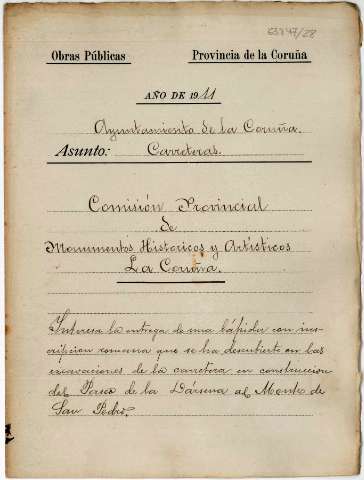 63847/28
Obras Públicas Provincia de la Coruña
AÑO DE 1911
Ayuntamiento de la Coruña.
Asunto: Carreteras.
Comisión Provincial
de
Monumentos Históricos y Artísticos
La Coruña.
Interesa la entrega de una lápida con ins-
cripcion romana que se ha descubierto en las
excavaciones de la carretera en construccion
del Paseo de la Dársena al Monte de
San Pedro.